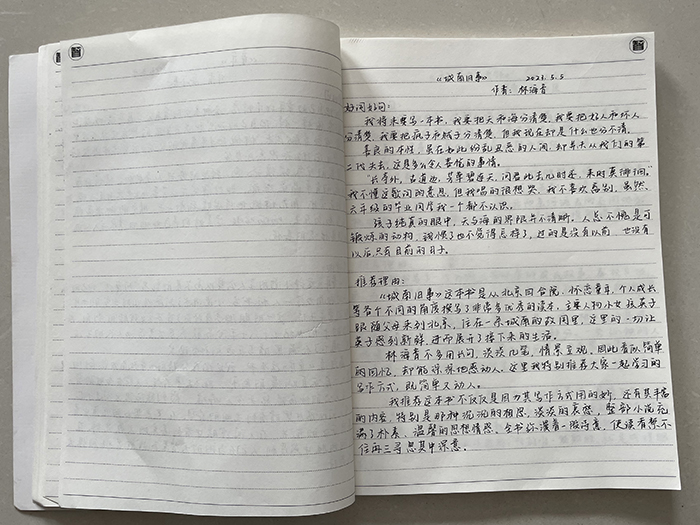 《城南旧事》 2023.5.5
作者：林海音
好词好句：
我将来要写一本书，我要把天和海分清楚，我要把好人和坏人
分清楚，我要把疯子和贼子分清楚，但我现在却是什么也分不清。
善良的本性，虽在如此纷乱丑恶的人间，却早失从我们的第
二代失去，这是多么令人喜悦的事情。
"长亭外，古道边，芳草碧连天，问君此去几时还，来时莫徘徊。"
我不懂这歌词的意思，但我唱的很想哭，我不喜欢离别，虽然，
六年级的毕业同学我一个都不认识。
孩子纯真的眼中，天与海的界限并不清晰。人总不愧是可
锻炼的动物，我惯了也不觉得怎样了，过的是没有以前，也没有
以后只有目前的日子。
推荐理由：
《城南旧事》这本书是从北京四合院，怀恋童年，个人成长
等各个不同的角度撰写了非常多优秀的读本，主要人物小女孩英子
跟随父母来到北京，住在一条城南的故园里，这里的一切让
英子感到新鲜，进而展开了接下来的生活。
林海音不多用长句，淡淡几笔，情景立现，因此看似简单
的回忆，却能深深地感动人。这里我特别推荐大家一起学习的
写作方式，既简单又动人。
我推荐这本书不仅仅是因为其写作方式用的妙，还有其丰富
的内容，特别是那种沉沉的相思，淡淡的哀愁，整部小说充
满了朴素，温馨的思想情感，全书弥漫着一股诗意，使读者禁不
住再三寻思其中深意。